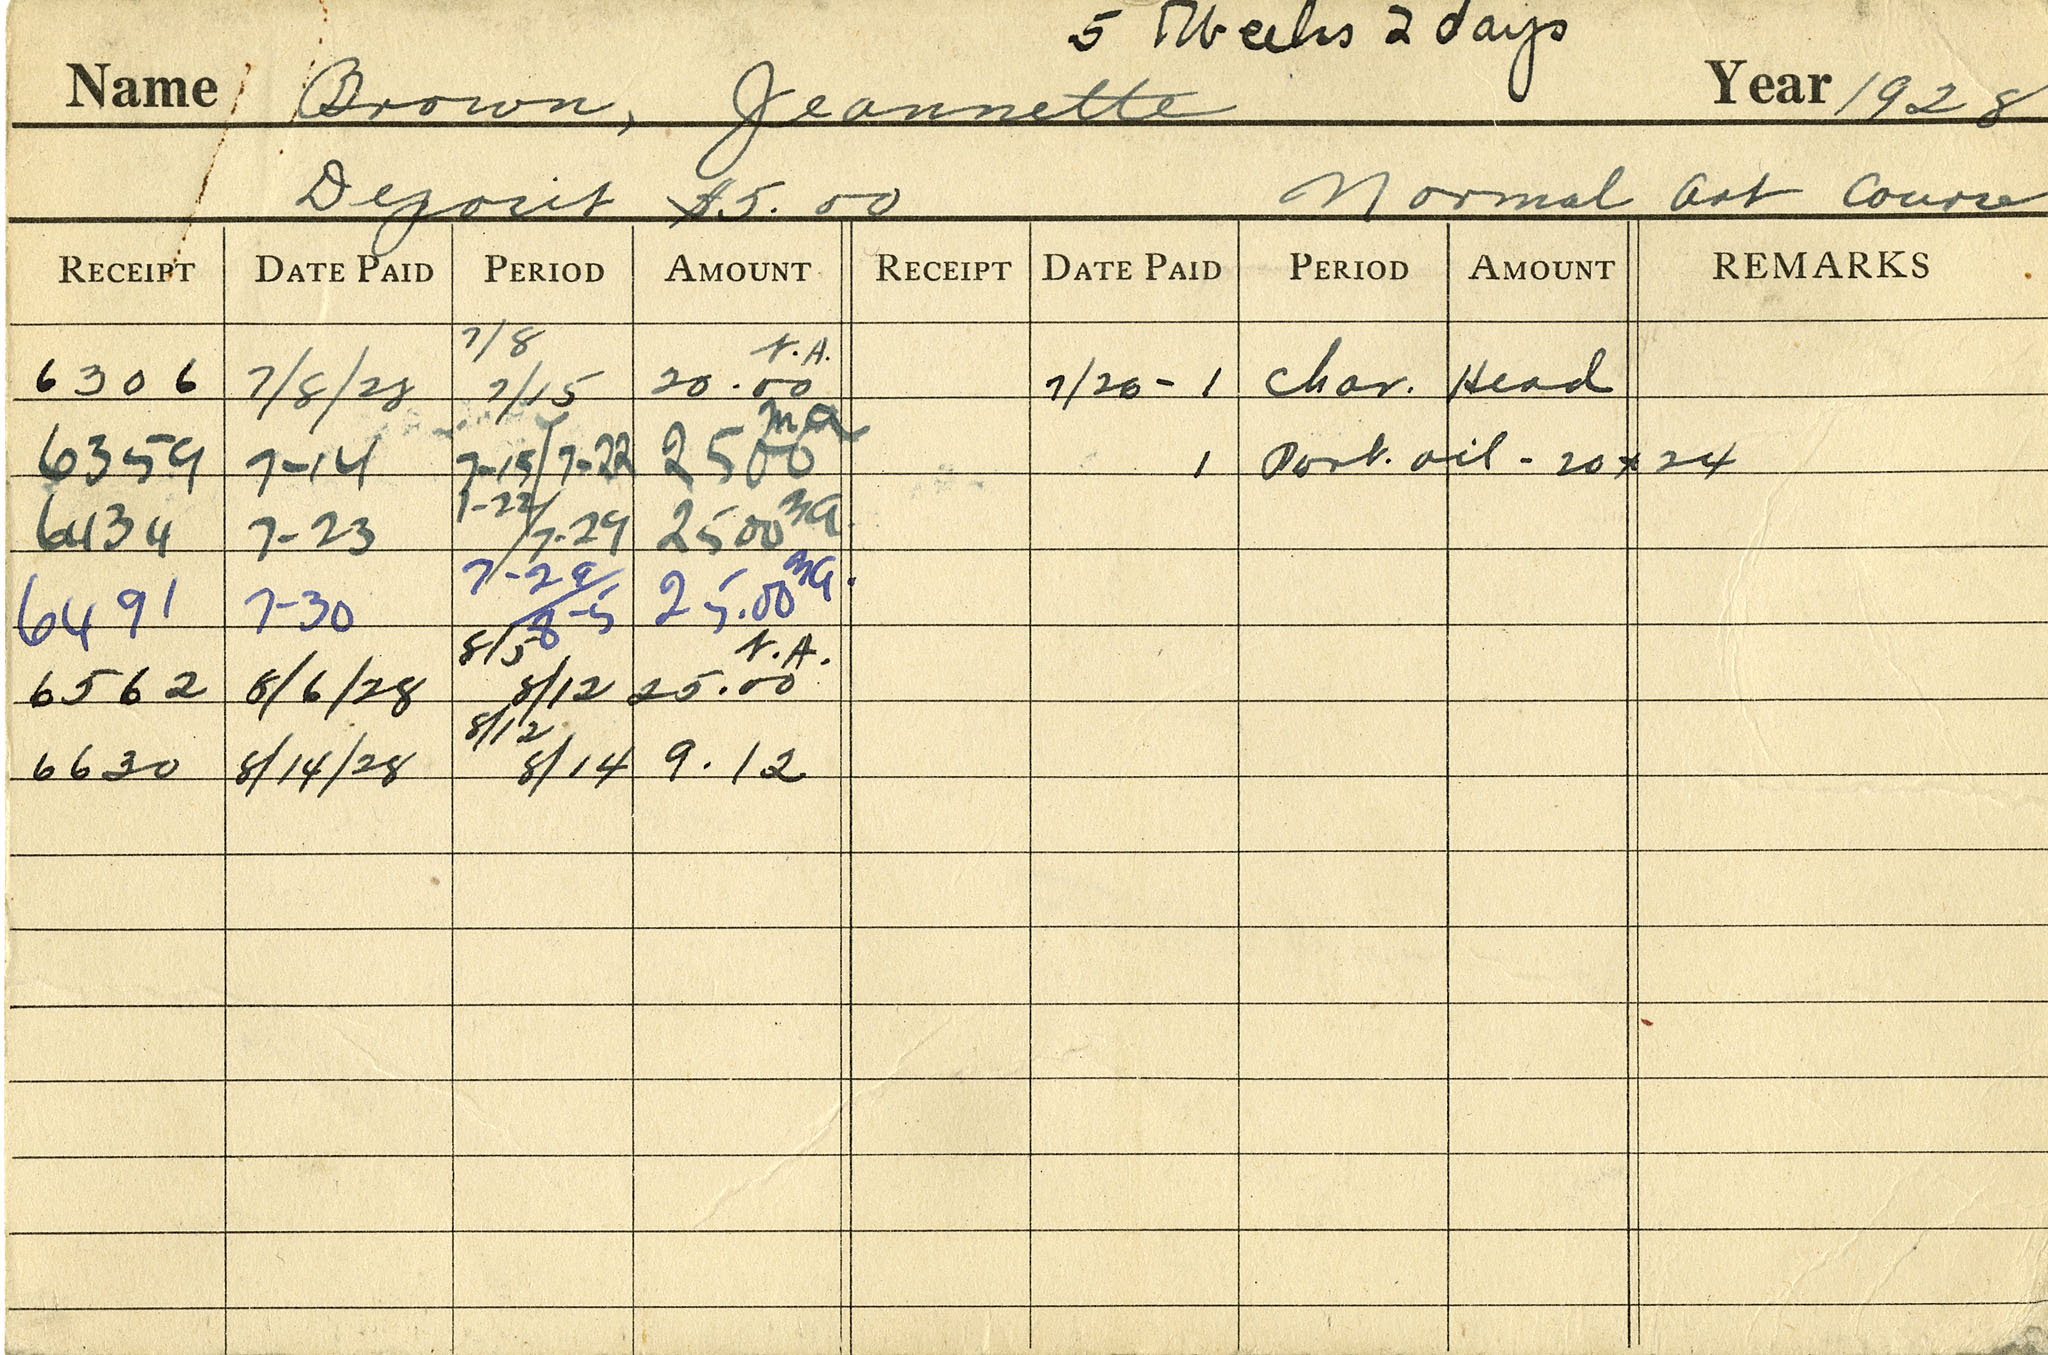 5 Weeks 2 days
Name Brown, Jeannette Year 1928
Deposit $5.00 Normal Art Course
RECEIPT DATE PAID PERIOD AMOUNT RECEIPT DATE PAID PERIOD AMOUNT REMARKS
7/8 N.A.
6306 7/8/28 7/15 20.00 7/20 - 1 Char. Head
6359 7-14 7-15/7-22 2500 1 Port. oil - 20 x 24
6434 7-23 7-22/7-29 2500
6491 7-30 7-29/8-5 25.00
8/5 N.A.
6562 8/6/28 8/12 25.00
8/12
6630 8/14/28 8/14 9.12